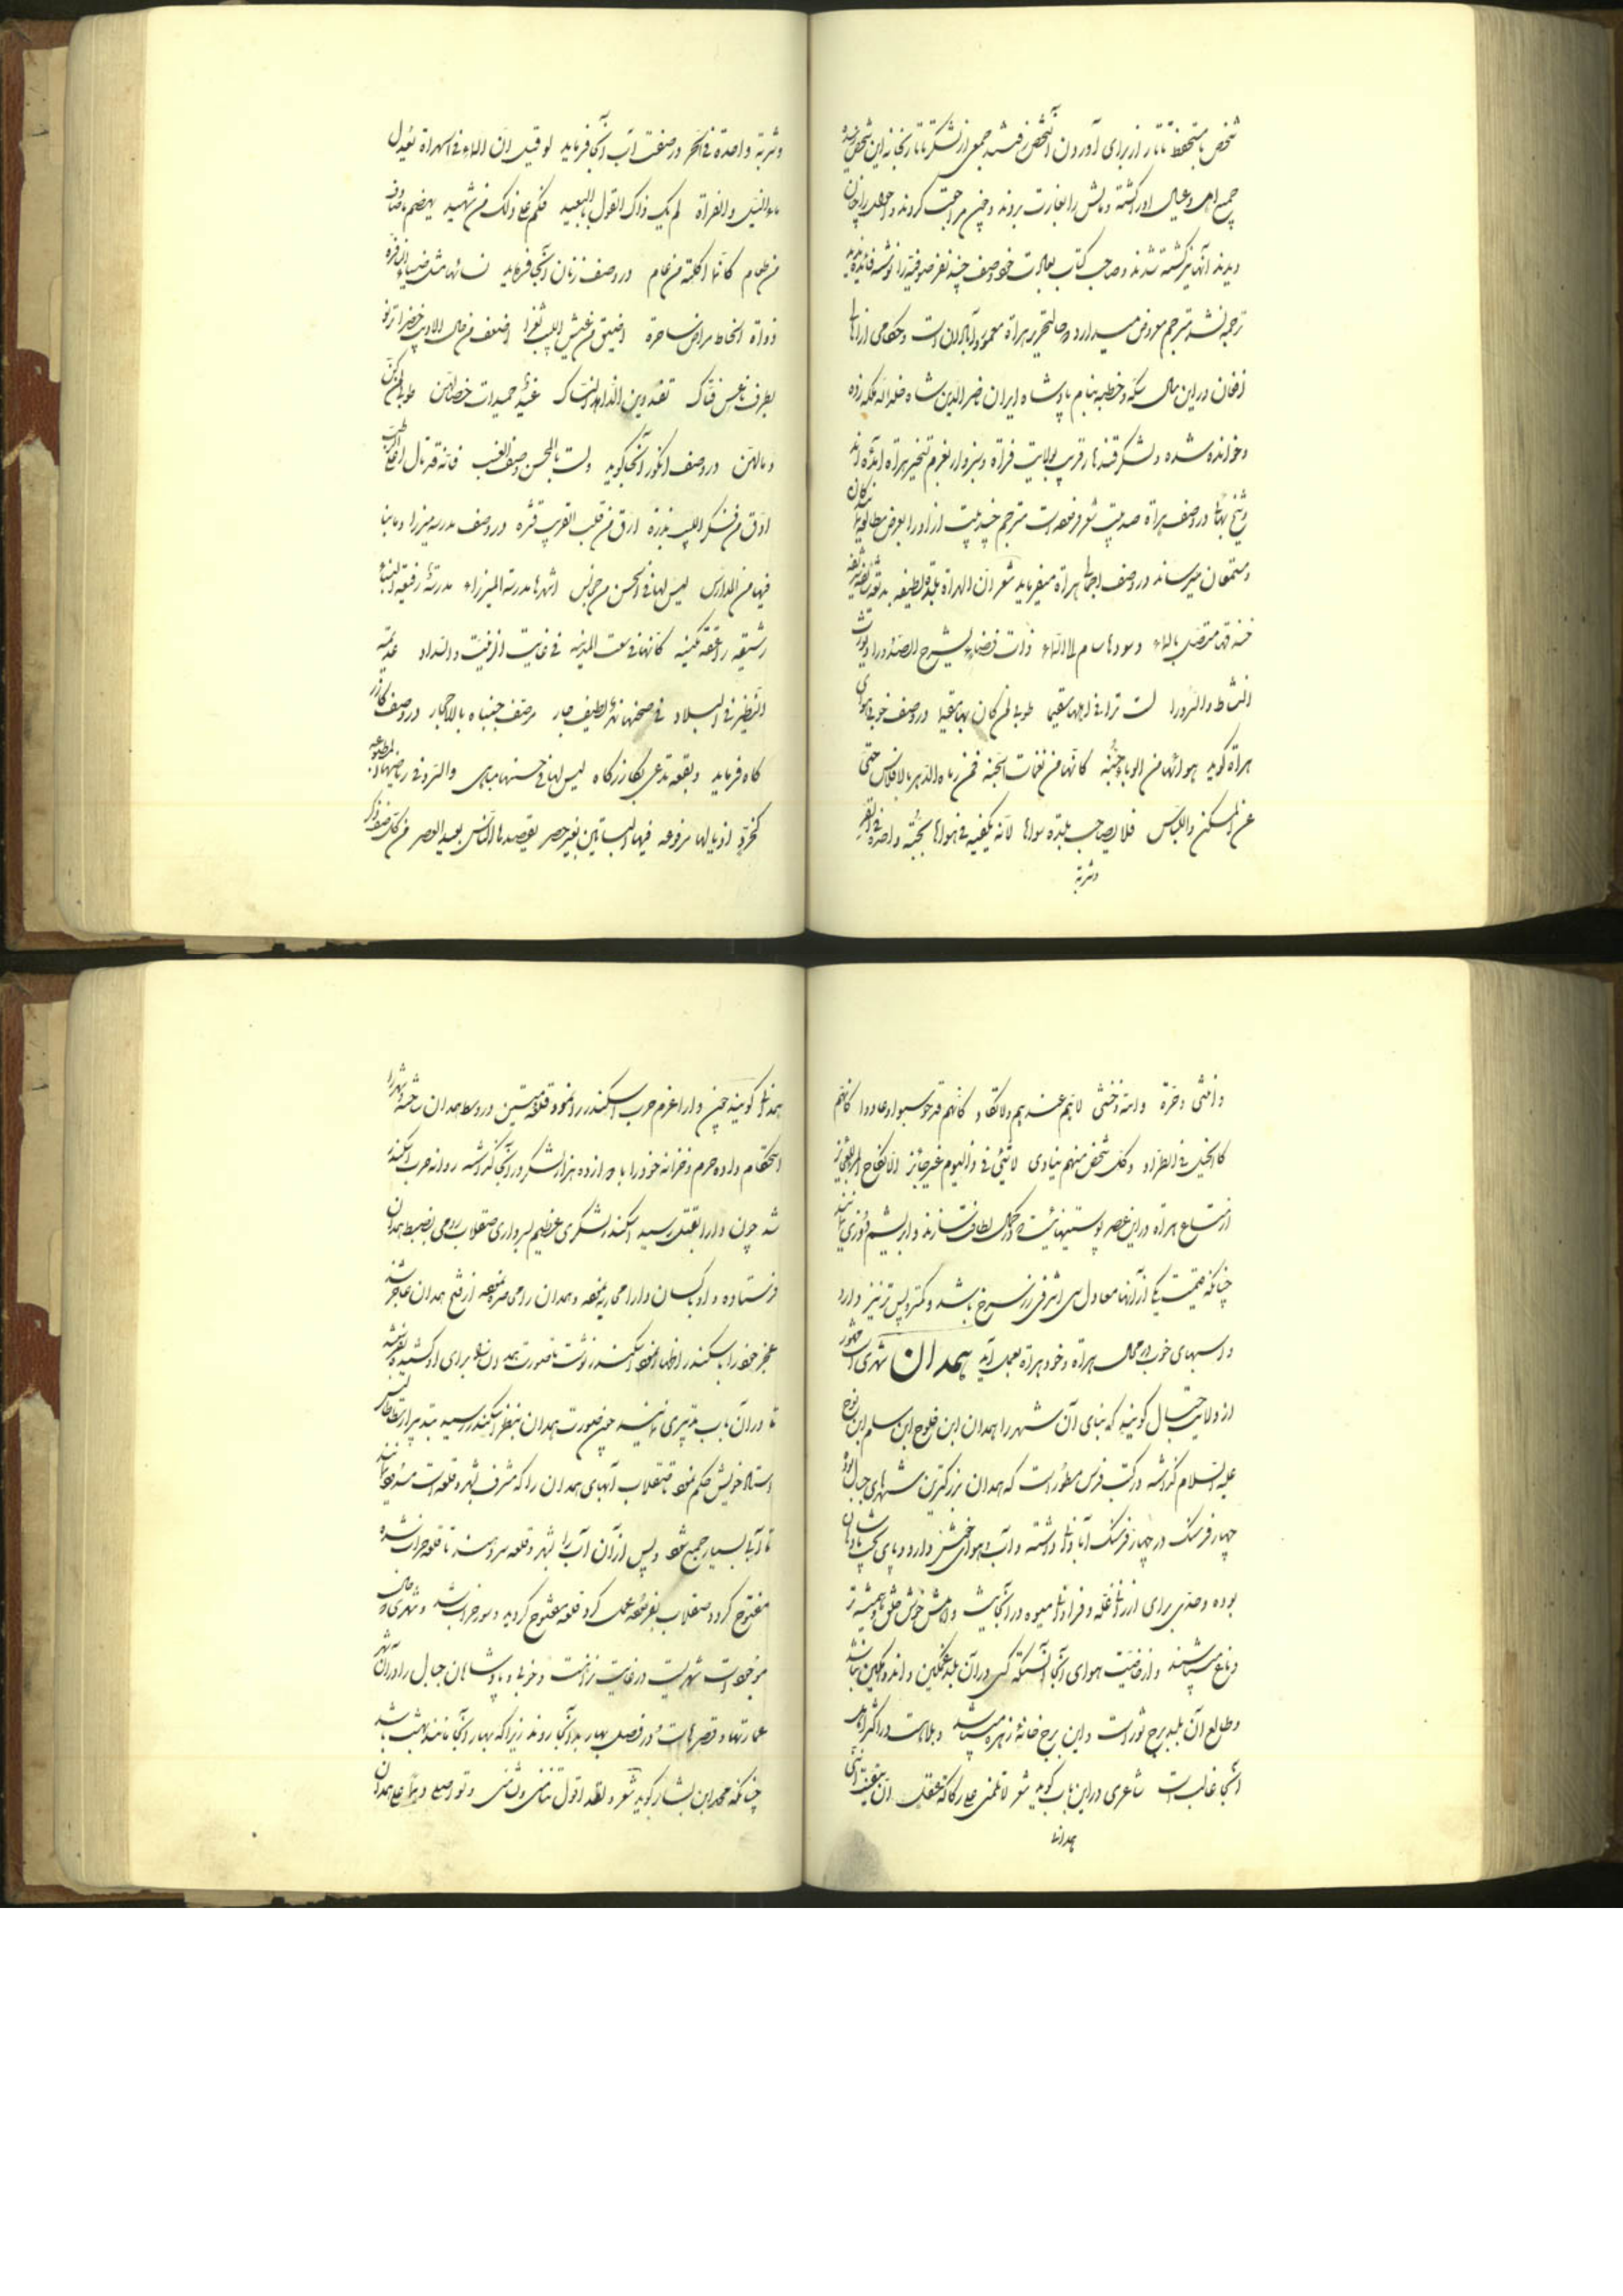 شخص با مستحفظ تاتار از برای آوردن آنشخص رفتند جمعی از لشکر تاتار بخانه این شخص
جمیع اهل و عیال او را کشته و مالش را بغارت بردند و چون مراجعت کردند و احوال را چنان
دیدند آنها نیز کشته شدند و صاحب کتاب بعادت خود وصف چند نفر صوفیه را نوشته فائده ندیدم
ترجمه نشد مترجم معروض میدارد در حال تحریر هراة معمور و آبادان است و حکامی از اهالی
افغان در این سال سکه و خطبه بنام پادشاه ایران ناصرالدین شاه خلد الله ملکه زده
و خوانده شده و لشکر قندهار قریب بولایت فراة و سبزوار بعزم تسخیر هراة آمده اند
و شیخ بهائی در وصف هراة صد بیت شعر فرموده است مترجم چند بیت از او را بعرض مطالعه کنندگان
و مستمعان میرساند در وصف اجمالی هراة میفرماید شعر ان الهراة بلدة لطیفه بدیعة شائقة شریفه
خندقها متصل بالماء و سورها سام الی السماء ذات فضاء یشرح الصدورا و یورث
النشاط و السرورا لست تری فی اهلها سقیما طوبی لمن کان بها مقیما در وصف خوبی هوای
هراة گوید هوائها من الوباء جنه کانها من نفحات الجنه فمن رماه الدهر بالافلاس حتی
عن المسکن و اللباس فلا یصاحب بلدة سواها لانه یکفیه فی هواها بجبة واحدة فی القر
وشربة
وشربة واحدة فی الحر در صفت آب آنجا فرماید لو قیل ان الماء فی الهراة یعدل
ماء النیل و الفراة لم یک ذاک القول بالبعید فکم علی ذلک من شهید یهضم ما صادف
من طعام کانما اکلته من عام در وصف زنان آنجا فرماید نسائها مثل ضباء نافره
ذواة الحاظ مراض ساحره اضیق من عیش اللبیب ثغرا اضعف من حال الادیب خصرا ترنو
بطرف ناعس فتاک تفسد دین الزاهد النساک غیر حمیدات خصالهن طوبی لمن یکن
وبالهن در وصف انگور آنجا گوید ولست بالمحسن وصف العنب فانه قد نال اعلی الرتب
ادق من فکر اللبیب بزره ارق من قلب الغریب قشره در وصف مدرسه میرزا و ما بنا
فیها من المدارس لیس لها فی الحسن من مجانس اشهرها مدرسة المیرزاء مدرسة رفیعة البناء
رشیقة رائقة مکینه کانها فی سعت المدینه فی غایت الزینت و السداد عدیمة
النظیر فی البلاد فی صحنها نهر لطیف جار مرصف جنباه بالاحجار در وصف گازر
گاه فرماید و بقعة تدعی بگازرگاه لیس لها فی حسنها مباهی و السرو فی ریاضها المطبوعه
کخرد اذیالها مرفوعه فیها البساتین بغیر حصر یقصدها الناس بعید العصر من کل صنف ذکر
و انثی و حرة و امة و خنثی لاهم عندهم ولا نکاد کانهم قد حوسبوا و عادوا کانهم
کالخیل فی الطراد و کل شخص منهم ینادی لا شئ فی ذا الیوم غیر جائز الا نکاح المرء للعجائز
از متاع هراة در این عصر پوستینهائیست که در کمال لطافت سازند و ابریشم فوزی بافند
چنانکه قیمت یکی از آنها معادل سی اشرفی زر سرخ باشد و کمتر و پست تر نیز دارد
و اسبهای خوب در محال هراة و خود هراة بعمل آید همدان شهری است مشهور
از ولایت جبال گویند که بنای آن شهر را همدان ابن فلوج ابن سام ابن نوح
علیه السلام گذاشته در کتب فرس مسطور است که همدان بزرگترین شهرهای جبال بوده
چهار فرسنگ در چهار فرسنگ آبادانی داشته و آب و هوای خوش دارد و پای تخت پادشاهان
بوده و حدی برای ارزانی غله و فراوانی میوه در آنجا نیست و مردمش خوش خلق و همیشه تر
دماغ میباشند و از خاصیت هوای آنجا آنستکه کسی در آن بلد غمگین و اندوهگین نباشد
و طالع آن بلد برج ثور است و این برج خانه زهره میباشد و بلاهت در اکثر اهل
آنجا غالب است شاعری در این باب گوید شعر لا تلمنی علی رکاکة عقلی ان تیقنت اننی
همدانی
همدانی گویند چون دارا عزم حرب اسکندر را نمود قلعه متین در وسط همدان ساخته و شهر را
استحکام داده حرم و خزانه خود را با دوازده هزار لشکر در آنجا گذاشته روانه حرب اسکندر
شد چون دارا بقتل رسید اسکندر لشکری عظیم بسرداری صقلاب رومی بضبط همدان
فرستاده و او با کسان دارا محاربه نموده و همدان را محاصره نموده از فتح همدان عاجز شد
عجز خود را باسکندر اظهار نمود اسکندر نوشت تا صورت همدان را برای او کشیده بفرستد
تا در آن باب تدبیری نماید چون صورت همدان بنظر اسکندر رسید بتدبیر ارسطاطالیس
استاد خویش حکم نمود تا صقلاب آبهای همدان را که مشرف بشهر و قلعه است مسدود نمایند
تا آب بسیار جمع شود و پس از آن آب را بشهر و قلعه سر دهند تا قلعه خراب شده
مفتوح گردد صقلاب بفرموده عمل کرد قلعه مفتوح گردید و سور خراب شد و شهری که حال
موجود است شهریست در غایت نزاهت و خوبی و پادشاهان جبال را در آن شهر
عمارتها و قصرهاست و در فصل بهار بدانجا روند زیرا که بهار آنجا مانند بهشت باشد
چنانکه محمد ابن بشار گوید شعر و لقد اقول تیامنی و تشامی و تواصلی دیما علی همدان